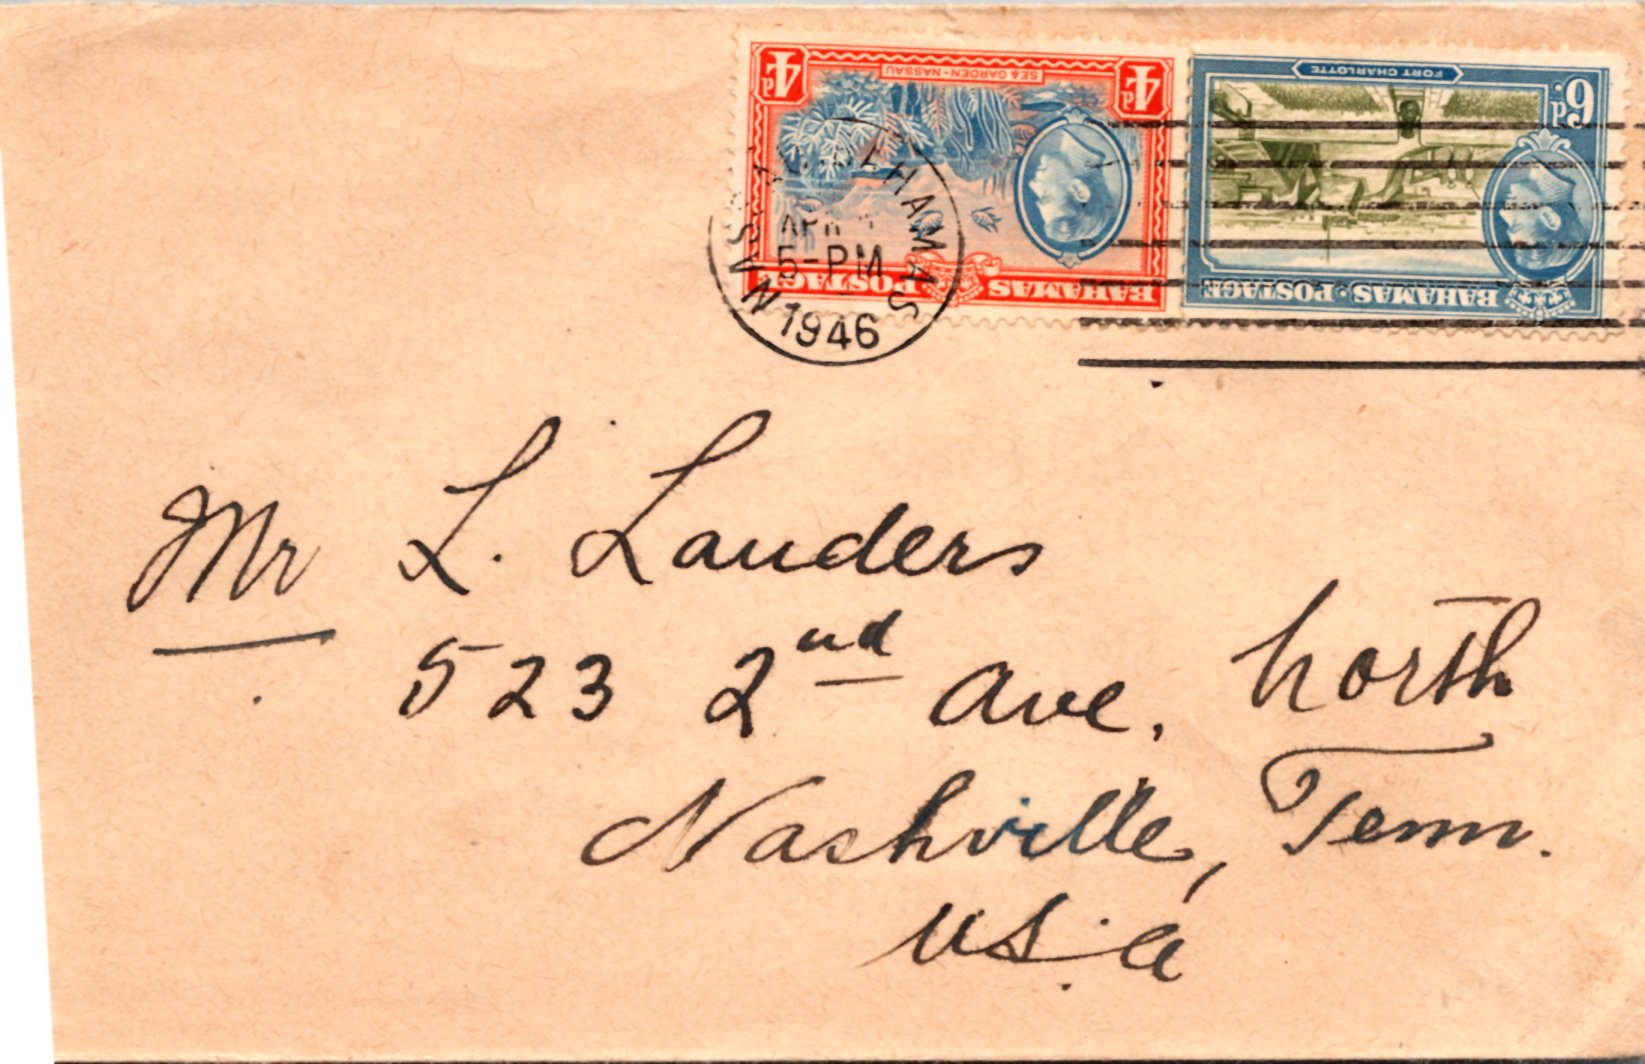 4d SEA GARDEN-NASSAU 4d
BAHAMAS POSTAGE
FORT CHARLOTTE
6d.
BAHAMAS·POSTAGE
NASSAU BAHAMAS
APR
5-PM
1946
Mr L. Landers
523 2nd Ave. North
Nashville, Tenn.
U.S.A